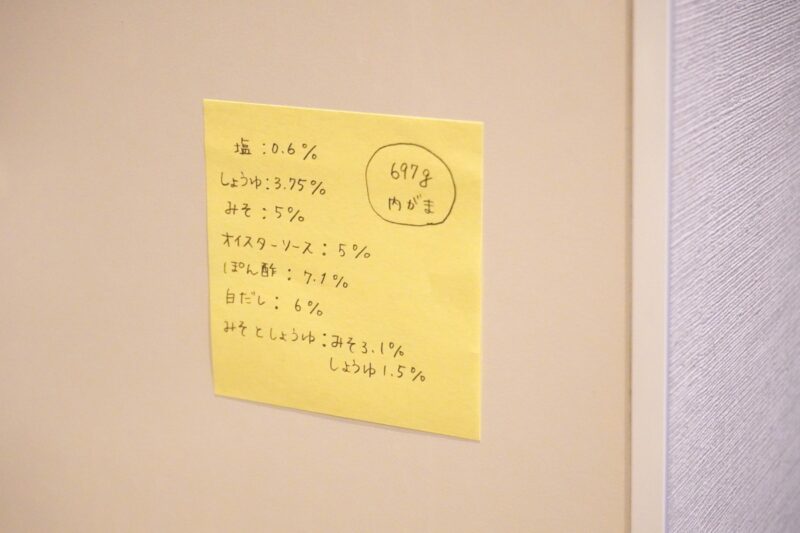 塩：0.6%
697g
内がま
しょうゆ：3.75%
みそ：5%
オイスターソース：5%
ぽん酢：7.1%
白だし：6%
みそとしょうゆ：みそ3.1%
しょうゆ1.5%